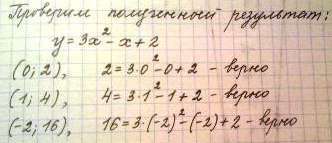 Проверим полученный результат:
y=3x²-x+2
(0; 2), 2=3·0²-0+2 - верно
(1; 4), 4=3·1²-1+2 - верно
(-2; 16), 16=3·(-2)²-(-2)+2 - верно